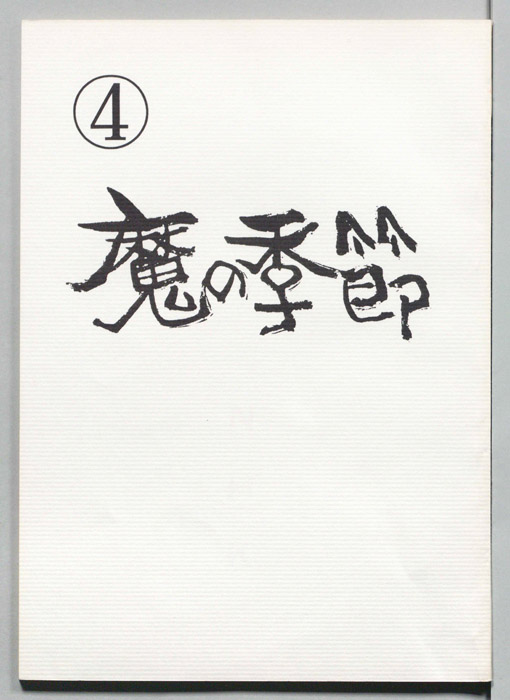 ④
魔の季節